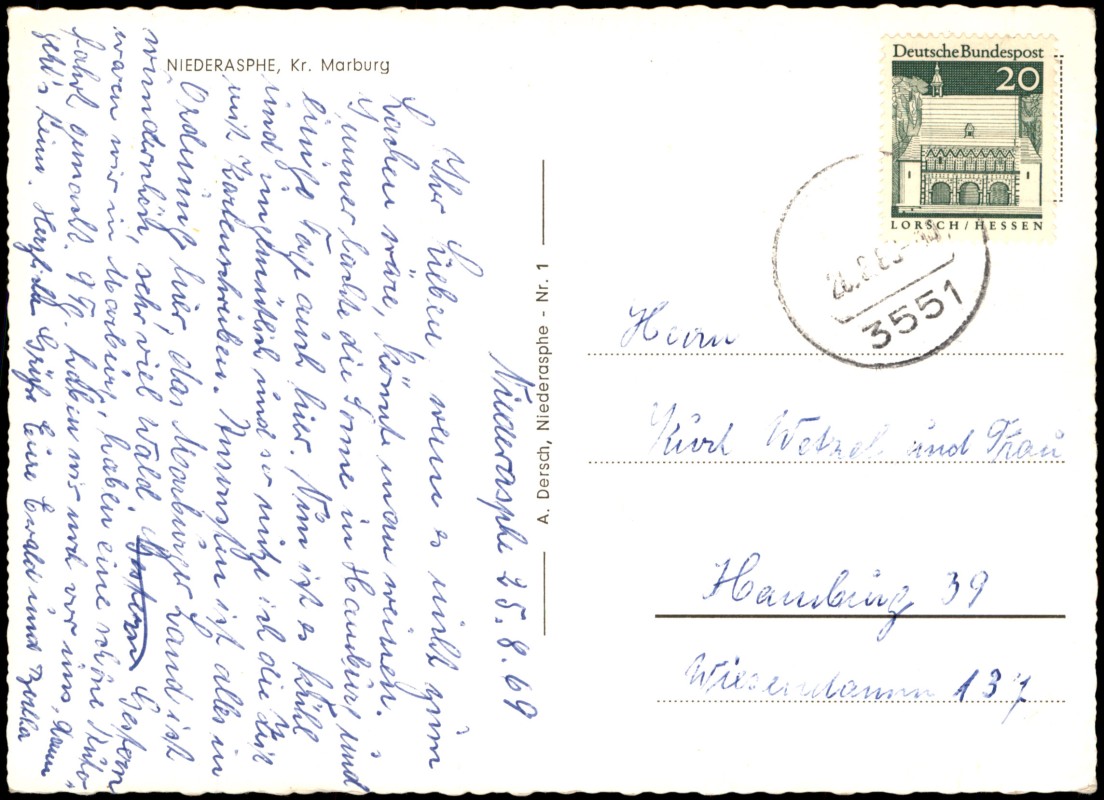 NIEDERASPHE, Kr. Marburg
Niederasphe 25.8.69
Ihr Lieben wenn es nicht zum
Lachen wäre, könnte man weinen.
Immer lachte die Sonne in Hamburg und
einige Tage auch hier. Nun ist es kühl
und ungemütlich und so nütze ich die Zeit
mit Kartenschreiben. Ansonsten ist alles in
Ordnung hier, das Marburger Land ist
wunderschön, sehr viel Wald. Gestern Gestern
waren wir in Marburg, haben eine schöne Auto-
fahrt gemacht. 9 Tg. haben wir noch vor uns, dann
geht's heim. Herzliche Grüße Eure Ewald und
A. Dersch, Niederasphe - Nr. 1
Deutsche Bundespost
20
LORSCH/HESSEN
3551
Herrn
Kurt Wetzel und Frau
Hamburg 39
Wiesendamm 137